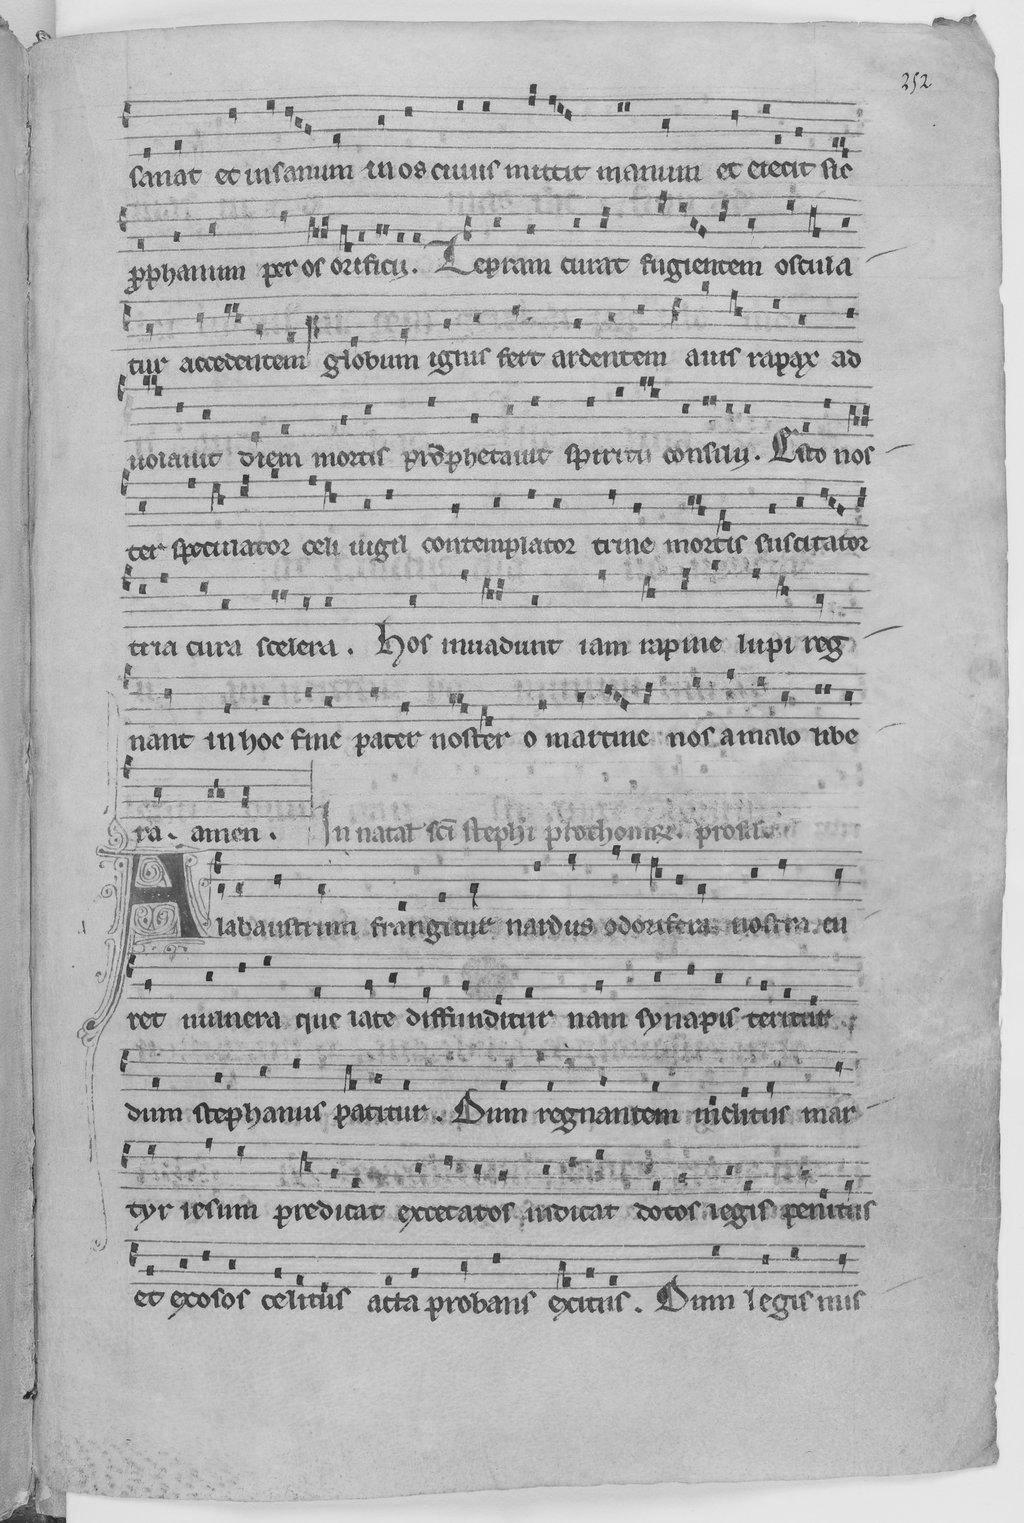 252
sanat et insanum in os cuius mittit manum et eiecit sic
prophanum per os orificij. Lepram curat fugientem oscula
tur accedentem globum ignis fert ardentem auis rapax ad
uolauit diem mortis prophetauit spiritu consilij. Esto nos
ter speculator celi uigil contemplator trine mortis suscitator
tria cura scelera. Hos inuadunt iam rapine lupi reg
nant in hoc fine pater noster o martine nos a malo libe
ra. amen. In natal sci stephi prothomr. prosa
Alabaustrum frangitur nardus odorifera nostra cu
ret uulnera que late diffunditur nam synapis teritur
dum stephanus patitur. Dum regnantem inclitus mar
tyr iesum predicat excecatos iudicat dotos legis penitus
et exosos celitus acta probans exitus. Dum legis uus